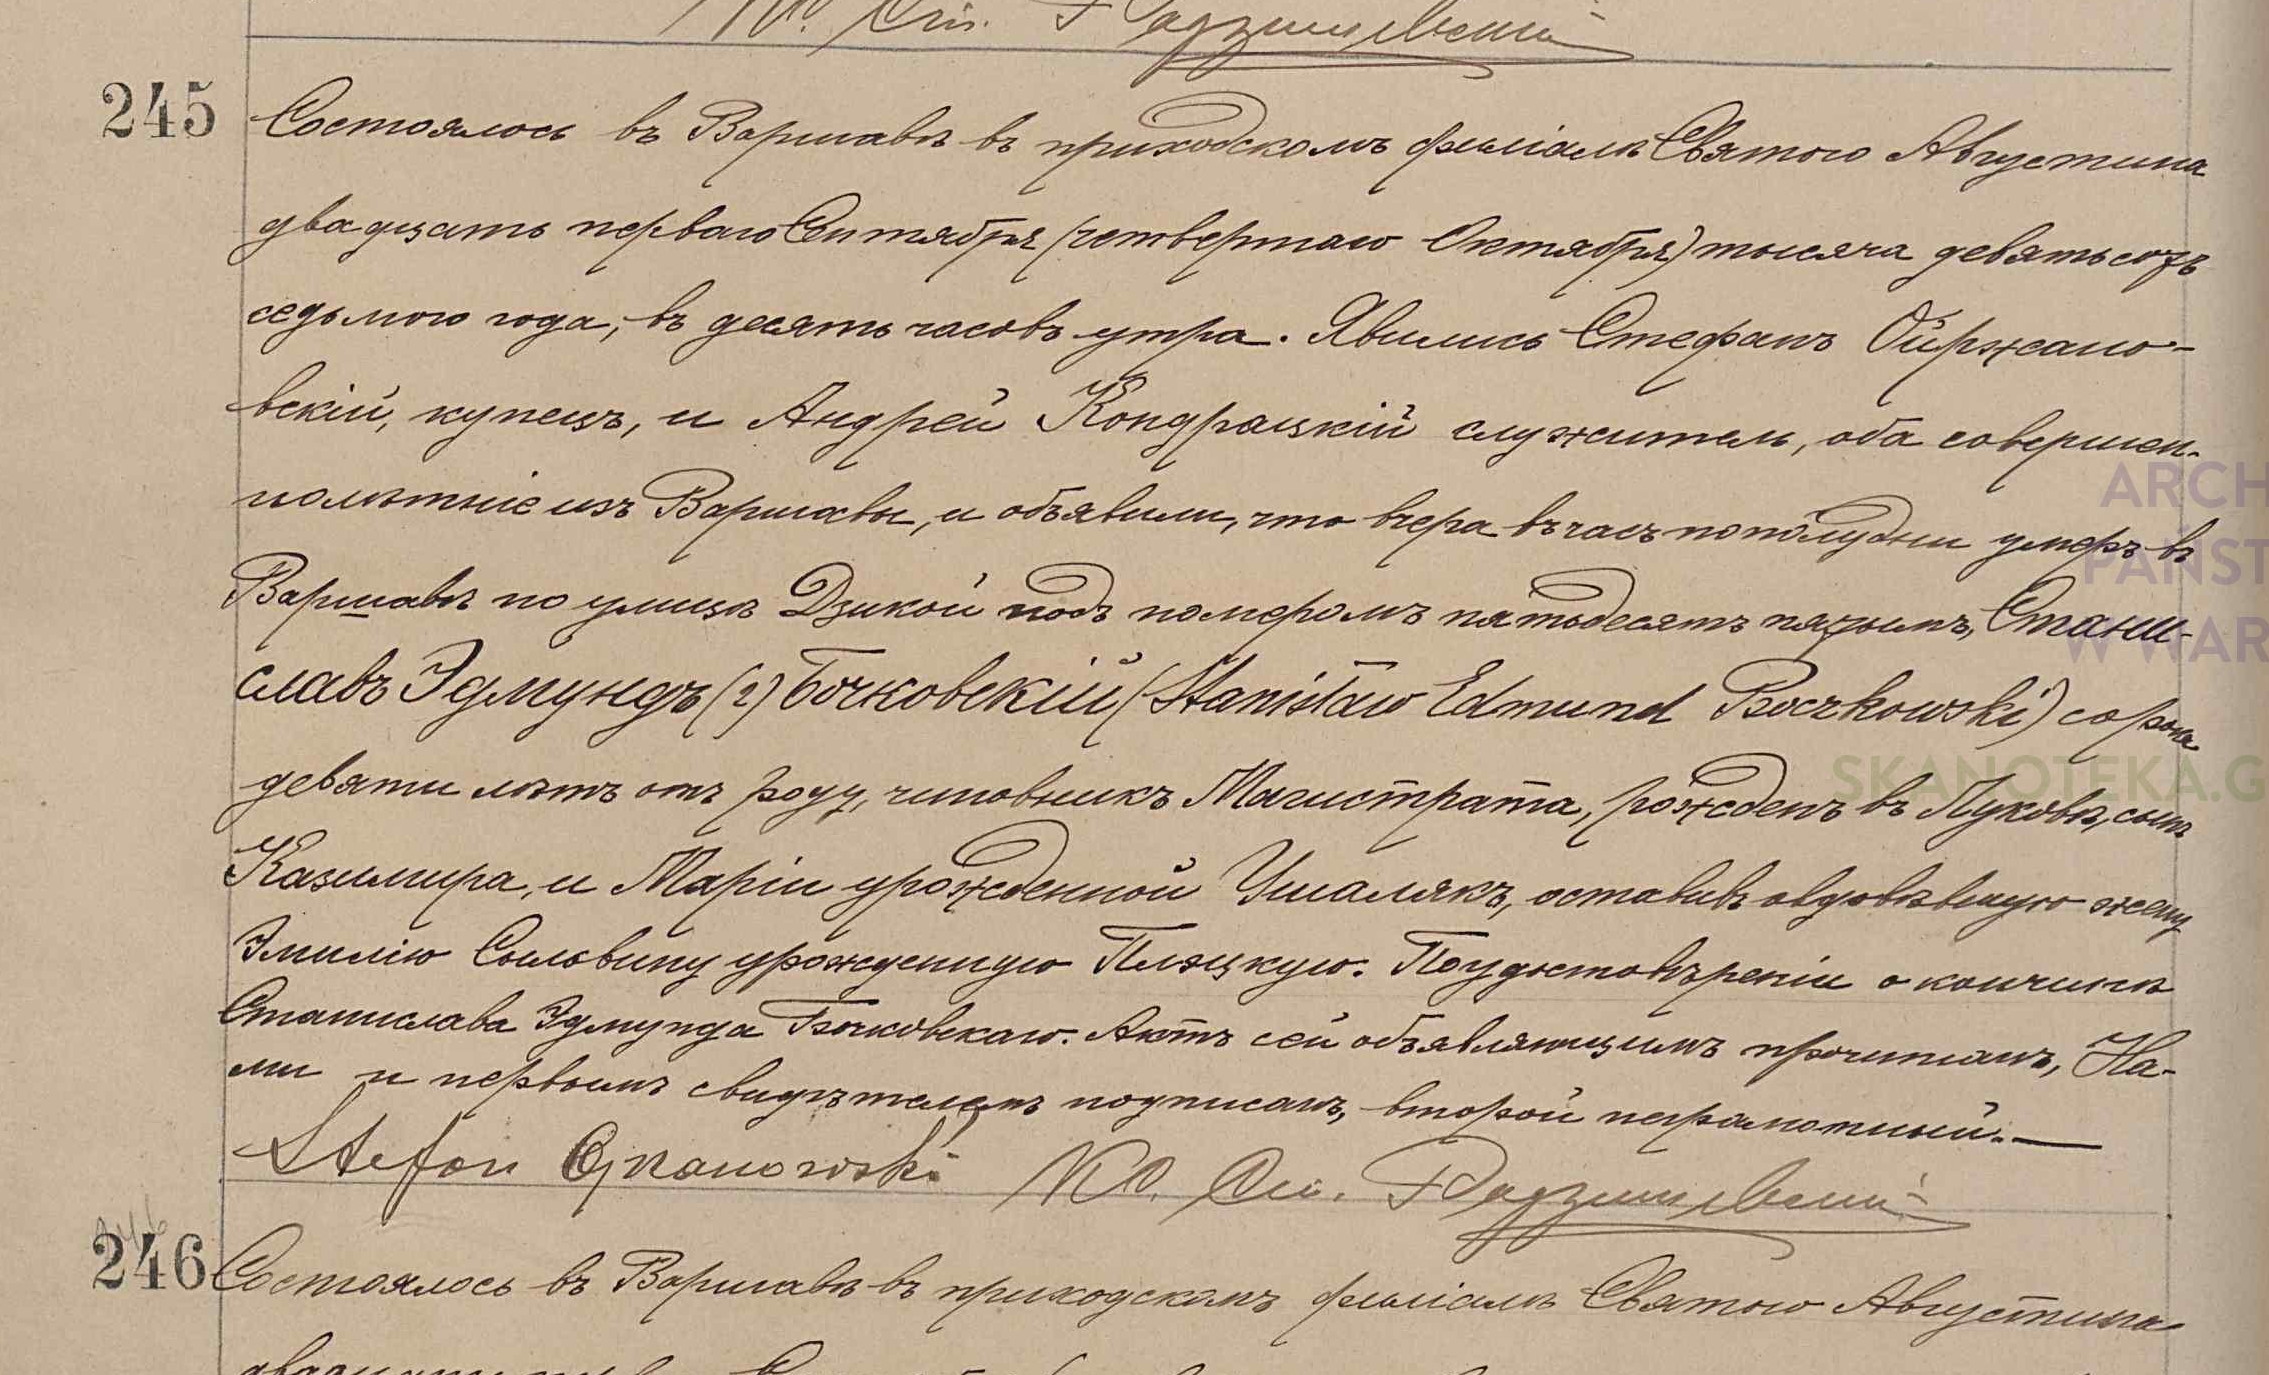 245
Состоялось въ Варшавѣ въ приходскомъ филіалѣ Святого Августина
двадцать перваго Сентября (четвертаго Октября) тысяча девятьсотъ
седьмого года, въ десять часовъ утра. Явились Стефанъ Ойржано-
вскій, купецъ, и Андрей Кондрацкій служитель, оба совершен-
нолѣтніе изъ Варшавы, и объявили, что вчера въ часъ пополудни умеръ въ
Варшавѣ по улицѣ Дзикой подъ номеромъ пятьдесятъ пятымъ, Стани-
славъ Эдмундъ (2) Бочковскій (Stanisław Edmund Boczkowski) сорока
девяти лѣтъ отъ роду, чиновникъ Магистрата, рожденъ въ Луковѣ, сынъ
Казимира, и Маріи урожденной Ушалякъ, оставивъ овдовѣвшую жену
Эмилію урожденную. По удостовѣреніи о кончинѣ
Станислава Эдмунда Бочковскаго. Актъ сей объявляющимъ прочитанъ, На-
ми и первымъ свидѣтелемъ подписанъ, второй неграмотный.—
Stefan Ojrzanowski Кс. Радзишевскій
246
Состоялось въ Варшавѣ въ приходскомъ филіалѣ Святого Августина
ARCH
PAŃST
W WAR
SKANOTEKA.G